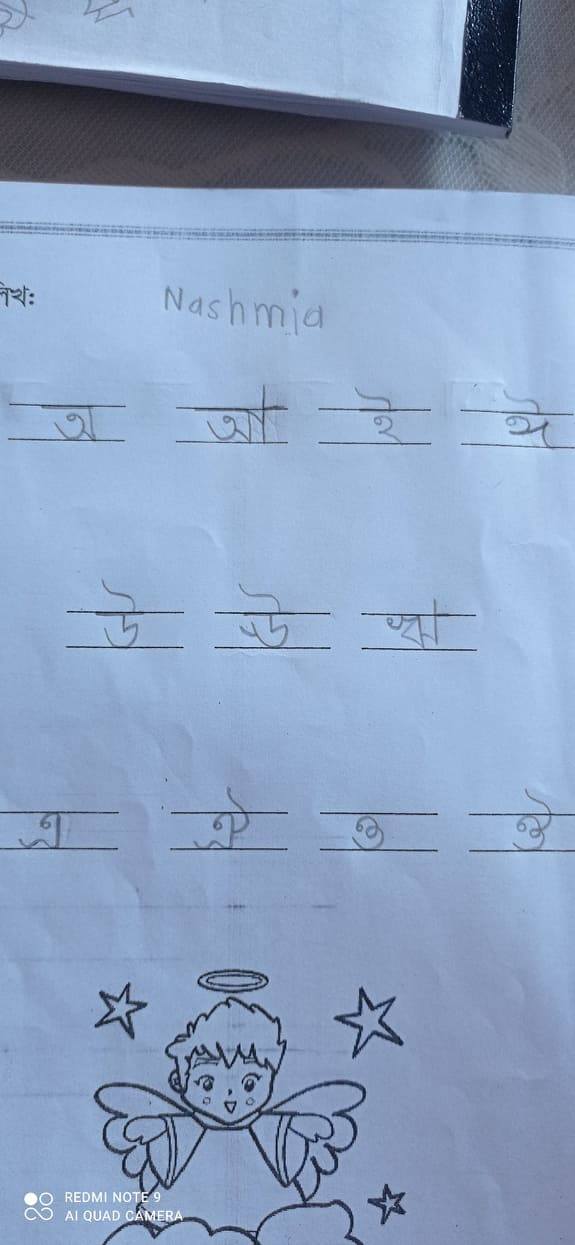 লিখ: Nashmia
অ আ ই ঈ
উ ঊ ঋ
এ ঐ ও ঔ
REDMI NOTE 9
AI QUAD CAMERA